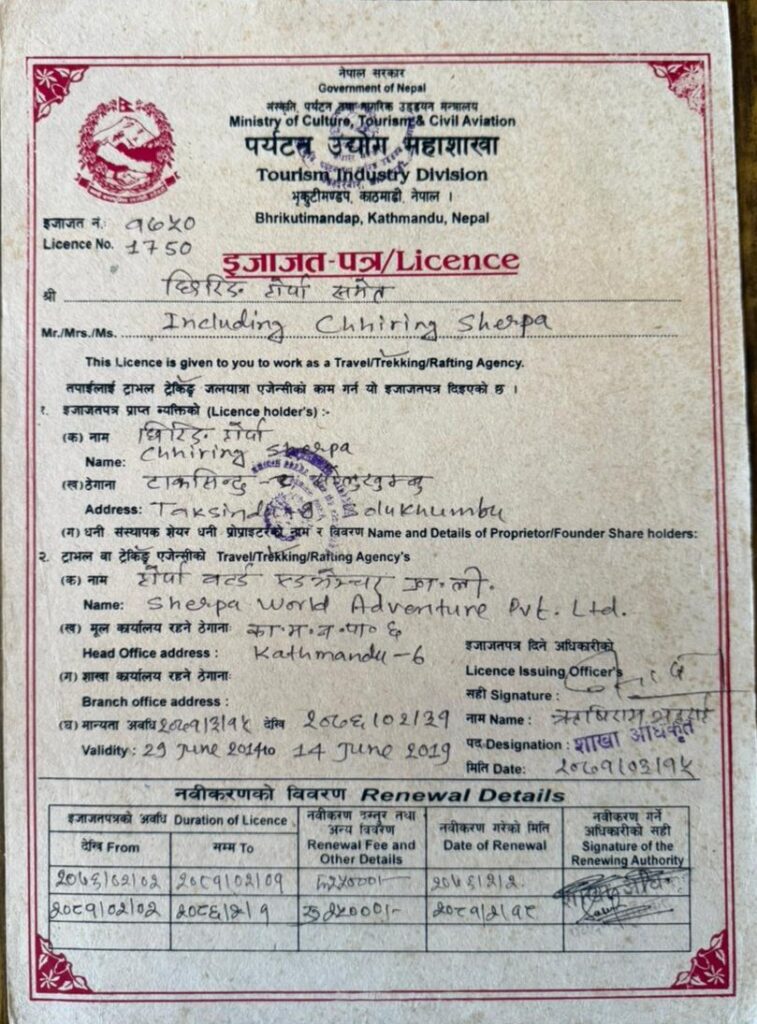 नेपाल सरकार
Government of Nepal
संस्कृति, पर्यटन तथा नागरिक उड्डयन मन्त्रालय
Ministry of Culture, Tourism & Civil Aviation
पर्यटन उद्योग महाशाखा
Tourism Industry Division
भृकुटीमण्डप, काठमाडौं, नेपाल ।
Bhrikutimandap, Kathmandu, Nepal
इजाजत नं. १७५०
Licence No. 1750
इजाजत-पत्र/Licence
श्री छिरिङ शेर्पा समेत
Mr./Mrs./Ms. Including Chhiring Sherpa
This Licence is given to you to work as a Travel/Trekking/Rafting Agency.
तपाईलाई ट्राभल ट्रेकिङ्ग जलयात्रा एजेन्सीको काम गर्न यो इजाजतपत्र दिइएको छ ।
१. इजाजतपत्र प्राप्त व्यक्तिको (Licence holder's) :-
(क) नाम छिरिङ शेर्पा
Name: Chhiring Sherpa
(ख) ठेगाना टाकसिन्दु सोलुखुम्बु
Address: Taksindu Solukhumbu
(ग) धनी संस्थापक शेयर धनी प्रोप्राइटरको नाम र विवरण Name and Details of Proprietor/Founder Share holders:
२. ट्राभल वा ट्रेकिङ्ग एजेन्सीको Travel/Trekking/Rafting Agency's
(क) नाम शेर्पा वर्ल्ड एडभेन्चर प्रा.ली.
Name: Sherpa World Adventure Pvt. Ltd.
(ख) मूल कार्यालय रहने ठेगानाः का.म.न.पा. ६
Head Office address : Kathmandu - 6
(ग) शाखा कार्यालय रहने ठेगानाः
Branch office address :
(घ) मान्यता अवधि २०७१/३/१५ देखि २०७६/०२/३१
Validity : 29 June 2014 to 14 June 2019
इजाजतपत्र दिने अधिकारीको
Licence Issuing Officer's
सही Signature :
नाम Name : ऋषिराम भट्टराई
पद Designation : शाखा अधिकृत
मिति Date: २०७१/०३/१५
नवीकरणको विवरण Renewal Details
इजाजतपत्रको अवधि Duration of Licence
देखि From
सम्म To
नवीकरण दस्तुर तथा अन्य विवरण Renewal Fee and Other Details
नवीकरण गरेको मिति Date of Renewal
नवीकरण गर्ने अधिकारीको सही Signature of the Renewing Authority
२०७६/०२/०२ २०८१/०२/०१ रु २५०००।- २०७६/२/२
२०८१/०२/०२ २०८६/२/१ रु २५०००।- २०८१/२/१८